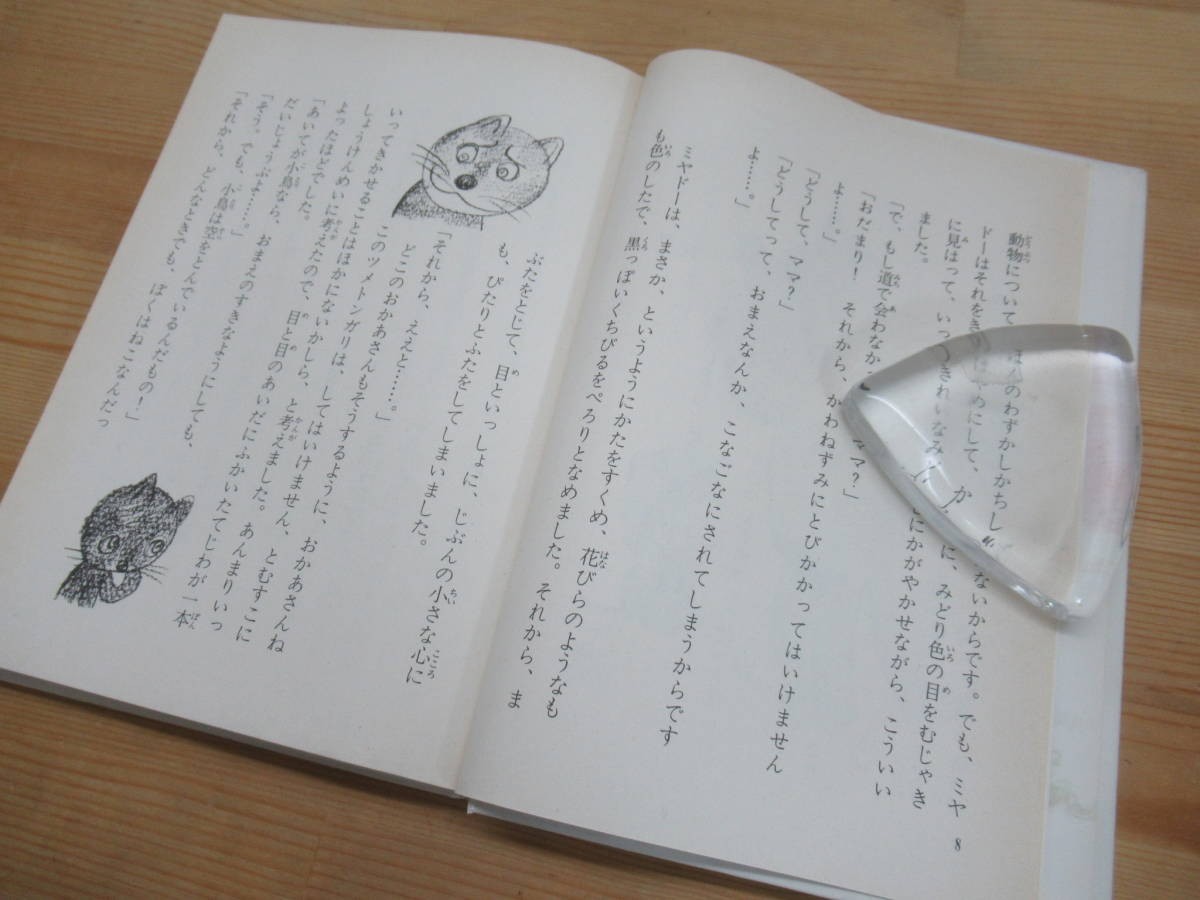 動物について ほんのわずかしかちし ないからです。でも、ミヤ
ドーはそれをき めにして、か に、みどり色の目をむじゃき
に見はって、いっ きれいなみ にかがやかせながら、こういい
ました。
「で、もし道で会わなか ママ?」
「おだまり! それから、かわねずみにとびかかってはいけません
よ……。」
「どうして、ママ?」
「どうしてって、おまえなんか、こなごなにされてしまうからです
よ……。」
ミヤドーは、まさか、というようにかたをすくめ、花びらのようなも
も色のしたで、黒っぽいくちびるをぺろりとなめました。それから、ま
8
ぶたをとじて、目といっしょに、じぶんの小さな心に
も、ぴたりとふたをしてしまいました。
「それから、ええと……。」
どこのおかあさんもそうするように、おかあさんね
このツメトンガリは、してはいけません、とむすこに
いってきかせることはほかにないかしら、と考えました。あんまりいっ
しょうけんめいに考えたので、目と目のあいだにふかいたてじわが一本
よったほどでした。
「あいてが小鳥なら、おまえのすきなようにしても、
だいじょうぶよ……。」
「そう。でも、小鳥は空をとんでいるんだもの!」
「それから、どんなときでも、ぼくはねこなんだっ